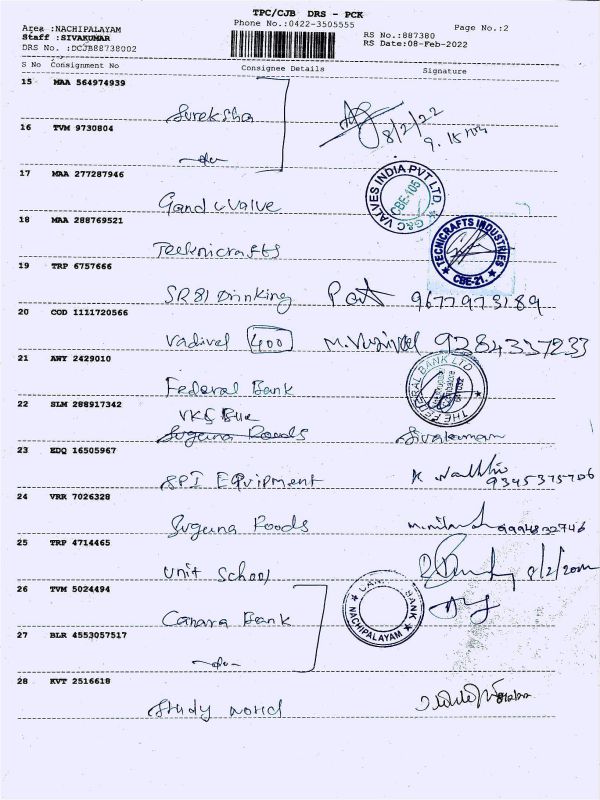 TPC/CJB DRS - PCK
Area :NACHIPALAYAM
Phone No.:0422-3505555
Page No.:2
Staff :SIVAKUMAR
RS No.:887380
DRS No. :DCJB88738002
RS Date:08-Feb-2022
S No Consignment No Consignee Details Signature
15 MAA 564974939
Sureksha
8/2/22
9.15
16 TVM 9730804
-do-
17 MAA 277287946
G and c valve
G&C VALVES INDIA PVT LTD
CBE-105
18 MAA 288769521
Technicrafts
TECNICRAFTS INDUSTRIES
CBE-21.
19 TRP 6757666
SR81 Drinking
20 COD 1111720566
Vadivel 400 9384337233
21 AWY 2429010
Federal Bank
THE FEDERAL BANK LTD
22 SLM 288917342
VKS Blue
Suguna Foods Sivakumar
23 EDQ 16505967
SPI Equipment 9345375706
24 VRR 7026328
Suguna Foods 9994832746
25 TRP 4714465
Unit School
26 TVM 5024494
Canara Bank
BANK
NACHIPALAYAM
27 BLR 4553057517
-do-
28 KVT 2516618
Study world